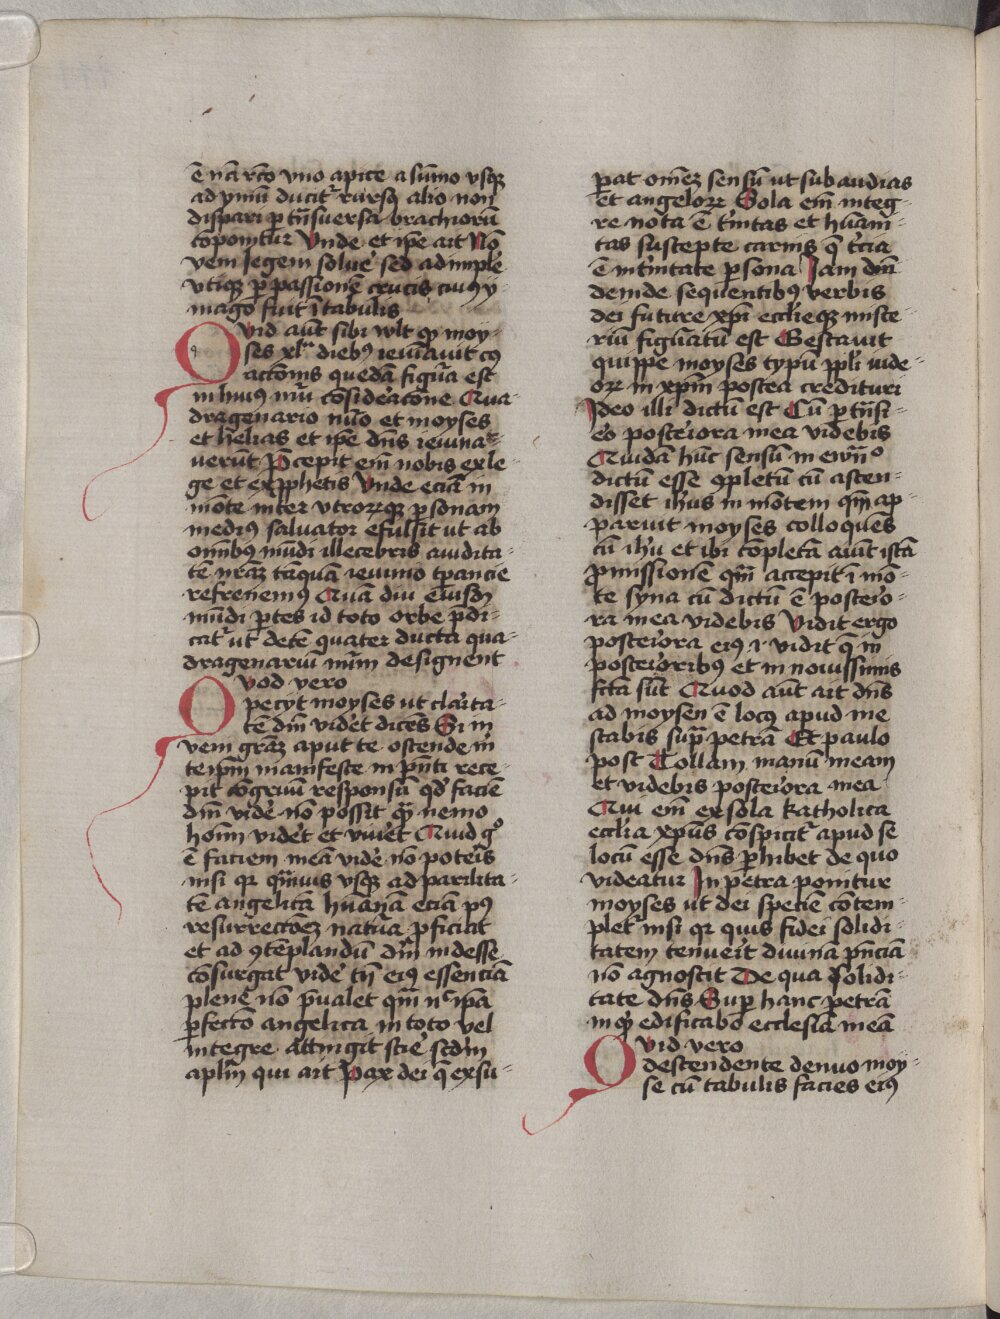 ē nā rc̄o vno apice a sūmo vsqꝫ
ad ymū ducit᷑ rursꝫ alio non
dispari ꝑ tn̄suersā brachiorū
cōponitur Vnde et ip̄e ait Nō
veni legem solu̾e sed adimple
vtiqꝫ ꝑ passionē crucis cuiꝰ y
mago fuit ī tabulis
Quid aūt sibi wlt qꝫ moy-
ses xlᵃ diebꝰ ieiūauit cꝰ
actōnis quedā figu̾a est
in huiꝰ nu̾i cōsiderac̄one Qua
dragenario nūo et moyses
et helias et ip̄e dn̄s ieiuna-
uerūt P̄cepit em̄ nobis ex le
ge et ex ꝓphetis Vnde eciā in
mōte inter vtrorꝫqꝫ ꝑsonam
mediꝰ saluator efulsit ut ab
om̄ibꝰ mūdi illecebris auidita-
tē nrāꝫ tāquā ieiunio tꝑancie
refrenemꝰ Quā diu eiusdꝫ
mūdi ꝑtes id toto orbe p̄di-
cat᷑ ut decē quater ducta qua-
dragenariū nu̾m designent
Quod vero
pecyt moyses ut clarita-
tē dn̄i vid̾et dicēs Si in
veni grāꝫ aput te ostende m̄
te ip̄m manifeste in p̄nti rece-
pit cōgruū responsū qd̾ faciē
dn̄i vid̾e nō possit qꝫ nemo
hom̄ vid̾et et viu̾et Quid gͦ
ē faciem meā vid̾e nō poteris
nisi qꝛ qm̄uis vsqꝫ ad parilita-
tē angelicā huānā eciā pꝰ
resurrectōeꝫ natu̾a ꝓficiat
et ad ꝯtēplandū dm̄ indesse
cōsurgat vid̾e tn̄ eiꝰ essenciā
plene nō p̄ualet qm̄ nᶜ ip̄a
ꝑfectō angelica in toto vel
integre attingit scire scdm̄
apl̄m qui ait Pax dei q̄ exsu-
ꝑat om̄eꝫ sensū ut sub audias
et angelorꝫ Sola em̄ integ-
re nota ē t̾nitas et huāni-
tas suscepte carnis q̄ t̾cia
ē in t̾nitate ꝑsona Jam dn̄i
deinde sequentibꝰ verbis
dei future xp̄i eccl̄ieqꝫ miste-
riū figu̾atū est Gestauit
quippe moyses typū ppl̄i iude-
orꝫ in xp̄m postea credituri
Ideo illi dictū est Cū ꝑ tn̄si-
e̾o posteriora mea videbis
Quidā hūc sensū in ewn̄ᵒ
dictū esse ꝯpletū cū ascen-
disset ih̄us in mōtem qm̄ ap-
paruit moyses colloques
cū ih̄u et ibi cōpletā aiūt istā
ꝓmissionē qm̄ accepit ī mō-
te syna cū dictū ē posterio-
ra mea videbis Vidit ergo
posteriora eiꝰ i· vidit q̄ in
posterioribꝰ et in nouissimis
fc̄a sūt Quod aūt ait dn̄s
ad moysen ē locꝰ apud me
stabis sup̄ petrā Et paulo
post Tollam manū meam
et videbis posteriora mea
Qui em̄ ex sola katholica
eccl̄ia xp̄us cōspicit᷑ apud se
locū esse dn̄s ꝑhibet de quo
videatur In petra ponitur
moyses ut dei speciē cōtem-
plet nisi qꝛ quis fidei solidi-
tatem tenue̾it diuinā p̄nciā
nō agnoscit De qua solidi-
tate dn̄s Suꝑ hanc petrā
inqꝫ edificabo ecclesiā meā
Quid vero
descendente denuo moy-
se cū tabulis facies eiꝰ